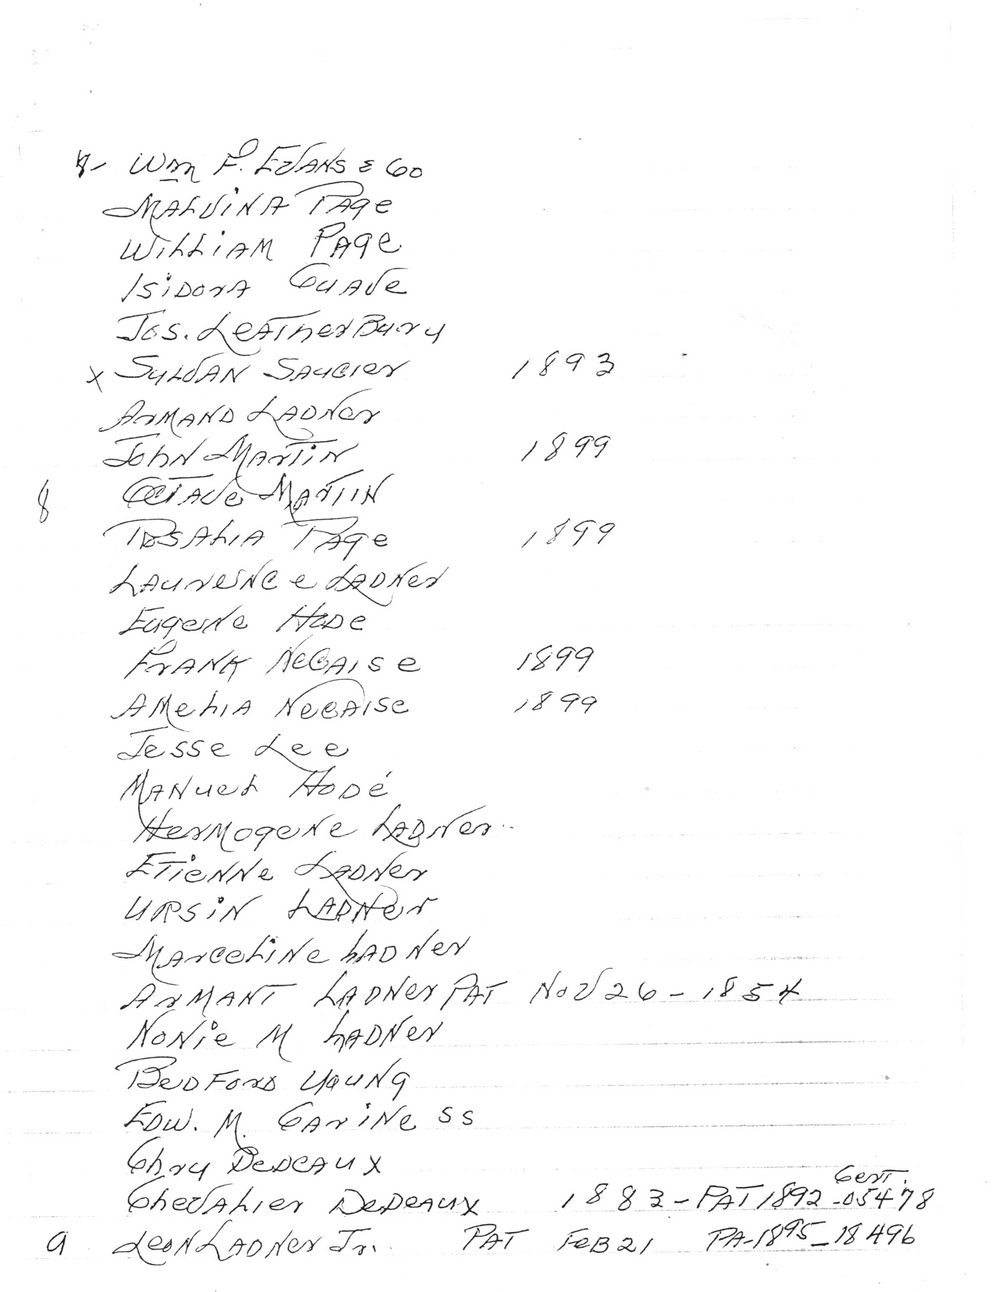 Wm F. Evans & Co
Malvina Page
William Page
Isidora Cuave
Jos. Leatherbury
x Sylvan Saucier 1893
Armand Ladner
John Martin 1899
8 Octave Martin
Rosalia Page 1899
Laurence Ladner
Eugene Hode
Frank Necaise 1899
Amelia Necaise 1899
Jesse Lee
Manuel Hodé
Hermogene Ladner
Etienne Ladner
Ursin Ladner
Marceline Ladner
Armant Ladner PAT Nov 26 - 1854
Nonie M Ladner
Bedford Young
Edw. M. ss
Dedeaux
Cert.
Chevalier Dedeaux 1883 - PAT 1892 - 05478
9 Leon Ladner Jr. PAT Feb 21 PA-1895-18496